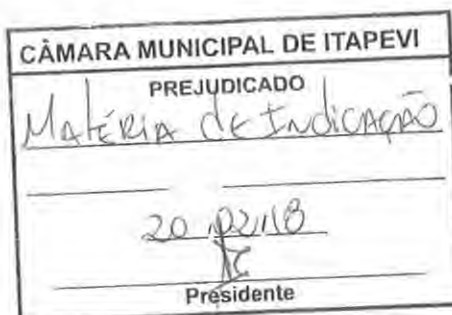 CÂMARA MUNICIPAL DE ITAPEVI
PREJUDICADO
MATÉRIA DE INDICAÇÃO
20 02 18
Presidente